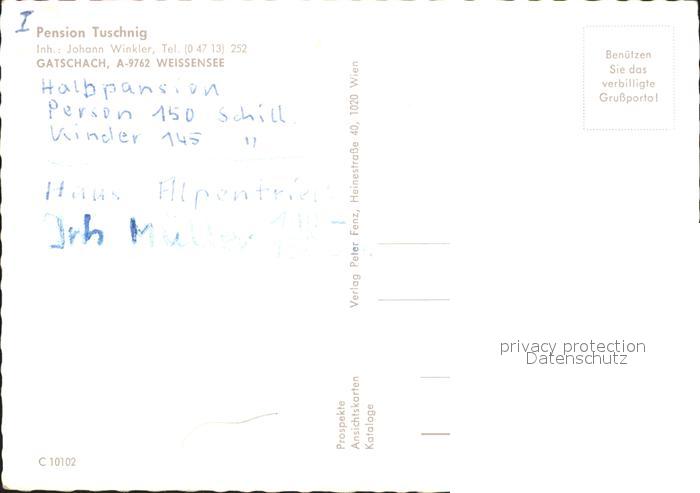 I
Pension Tuschnig
Inh.: Johann Winkler, Tel. (0 47 13) 252
GATSCHACH, A-9762 WEISSENSEE
Halbpansion
Person 150 Schill.
Kinder 145 "
Haus
Müller
C 10102
Verlag Peter Fenz, Heinestraße 40, 1020 Wien
Prospekte
Ansichtskarten
Kataloge
Benützen
Sie das
verbilligte
Grußporto!
privacy protection
Datenschutz